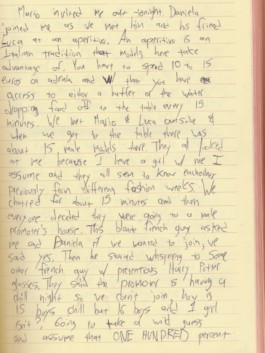 Mario invited me out tonight. Daniela
joined me as we met him and his friend
Luca at an aperitivo. An aperitivo is an
Italian tradition that models here take
advantage of. You have to spend 10 to 15
euros on a drink and w/ that you have
access to either a buffet or the waiter
dropping food off to the table every 15
minutes. We met Mario & Luca outside &
when we got to the table there was
about 15 male models there. They all looked
at me because I have a girl w/ me I
assume and they all seem to know eachother
previously from different fashion weeks. We
chatted for about 15 minutes and then
everyone decided they were going to a male
promoter's house. This blonde french guy asked
me and Daniela if we wanted to join, we
said yes. Then he started whispering to some
other french guy w/ pretentious Harry Potter
glasses. They said the promoter is having a
chill night so we can't join. How is
15 boys chill but 15 boys and 1 girl
isn't? Going to take a wild guess
and assume that ONE HUNDRED percent